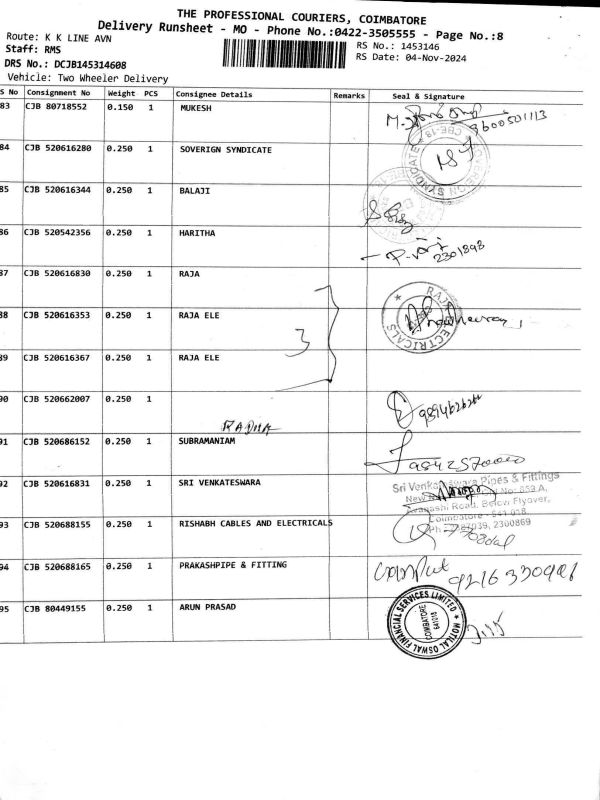 THE PROFESSIONAL COURIERS, COIMBATORE
Delivery Runsheet - MO - Phone No.:0422-3505555 - Page No.:8
Route: K K LINE AVN
RS No.: 1453146
Staff: RMS
RS Date: 04-Nov-2024
DRS No.: DCJB145314608
Vehicle: Two Wheeler Delivery
S No Consignment No Weight PCS Consignee Details Remarks Seal & Signature
83 CJB 80718552 0.150 1 MUKESH
9600501113
84 CJB 520616280 0.250 1 SOVERIGN SYNDICATE
85 CJB 520616344 0.250 1 BALAJI
86 CJB 520542356 0.250 1 HARITHA
2301898
87 CJB 520616830 0.250 1 RAJA
88 CJB 520616353 0.250 1 RAJA ELE 3 RAJA ELECTRICALS
89 CJB 520616367 0.250 1 RAJA ELE
90 CJB 520662007 0.250 1
RADHA
91 CJB 520686152 0.250 1 SUBRAMANIAM
92 CJB 520616831 0.250 1 SRI VENKATESWARA
Sri Venkateswara Pipes & Fittings
Avanashi Road, Below Flyover,
93 CJB 520688155 0.250 1 RISHABH CABLES AND ELECTRICALS
94 CJB 520688165 0.250 1 PRAKASHPIPE & FITTING
95 CJB 80449155 0.250 1 ARUN PRASAD
MOTILAL OSWAL FINANCIAL SERVICES LIMITED
COIMBATORE
641018